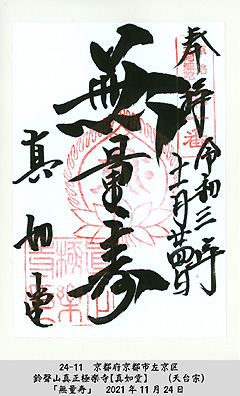 奉拝
令和三年
十一月廿四日
無量寿
真如堂
24-11　京都府京都市左京区
鈴聲山真正極楽寺【真如堂】　（天台宗）
「無量寿」　2021年11月24日